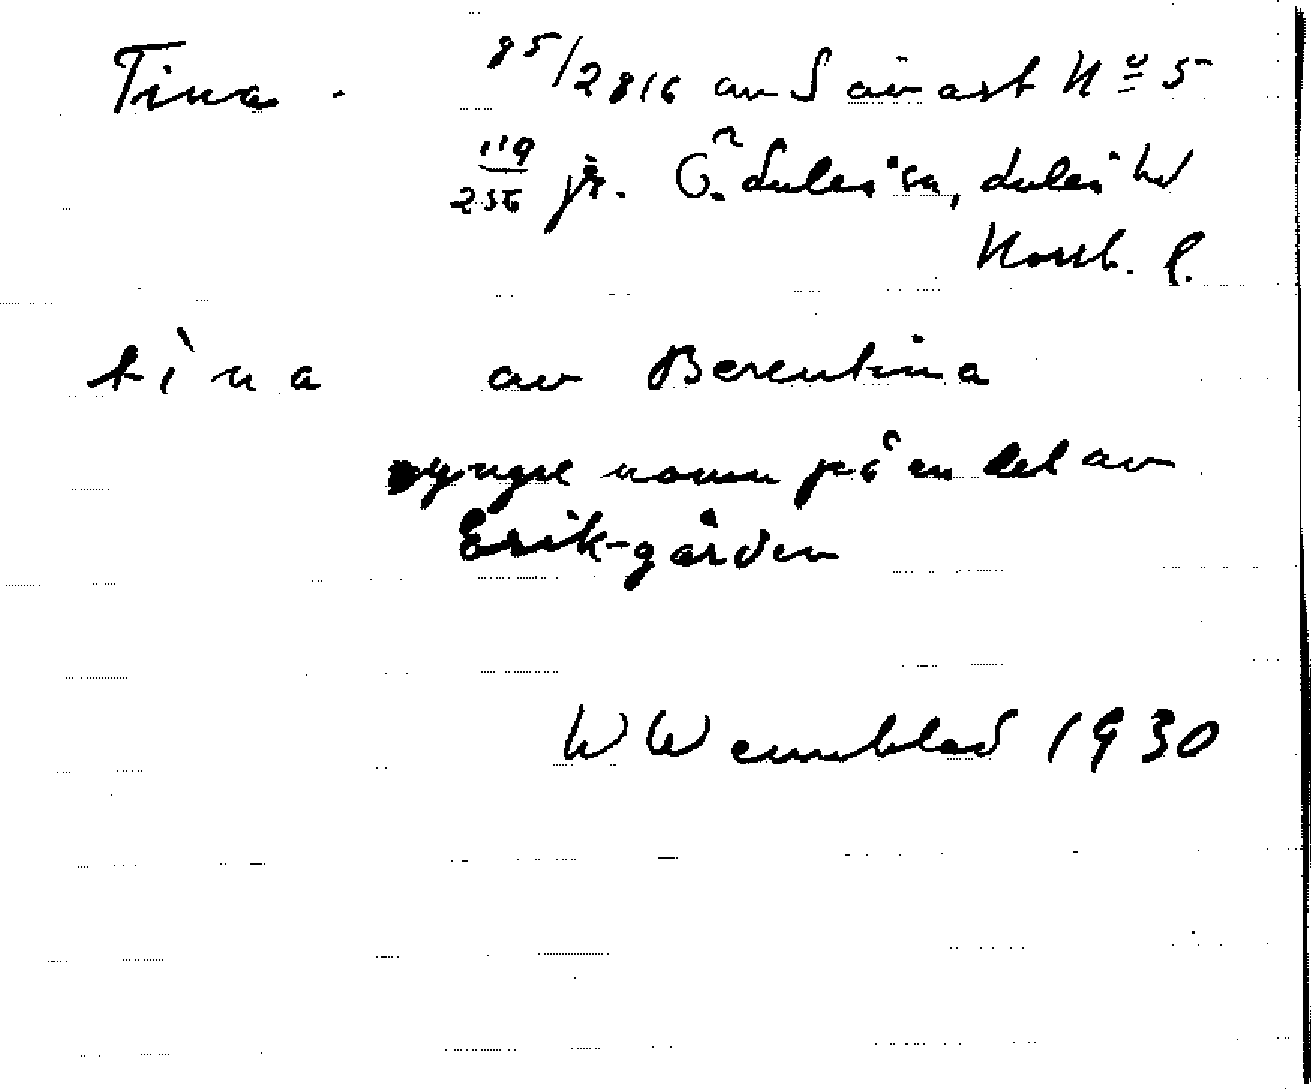 Tina. 85/2816 av Sävast No 5
119/256 jr. Ö. Luleå sn, Luleå hd
Norrb. l.
tìna av Berentina
yngre namn på en del av
Erik-gården
W Wennblad 1930